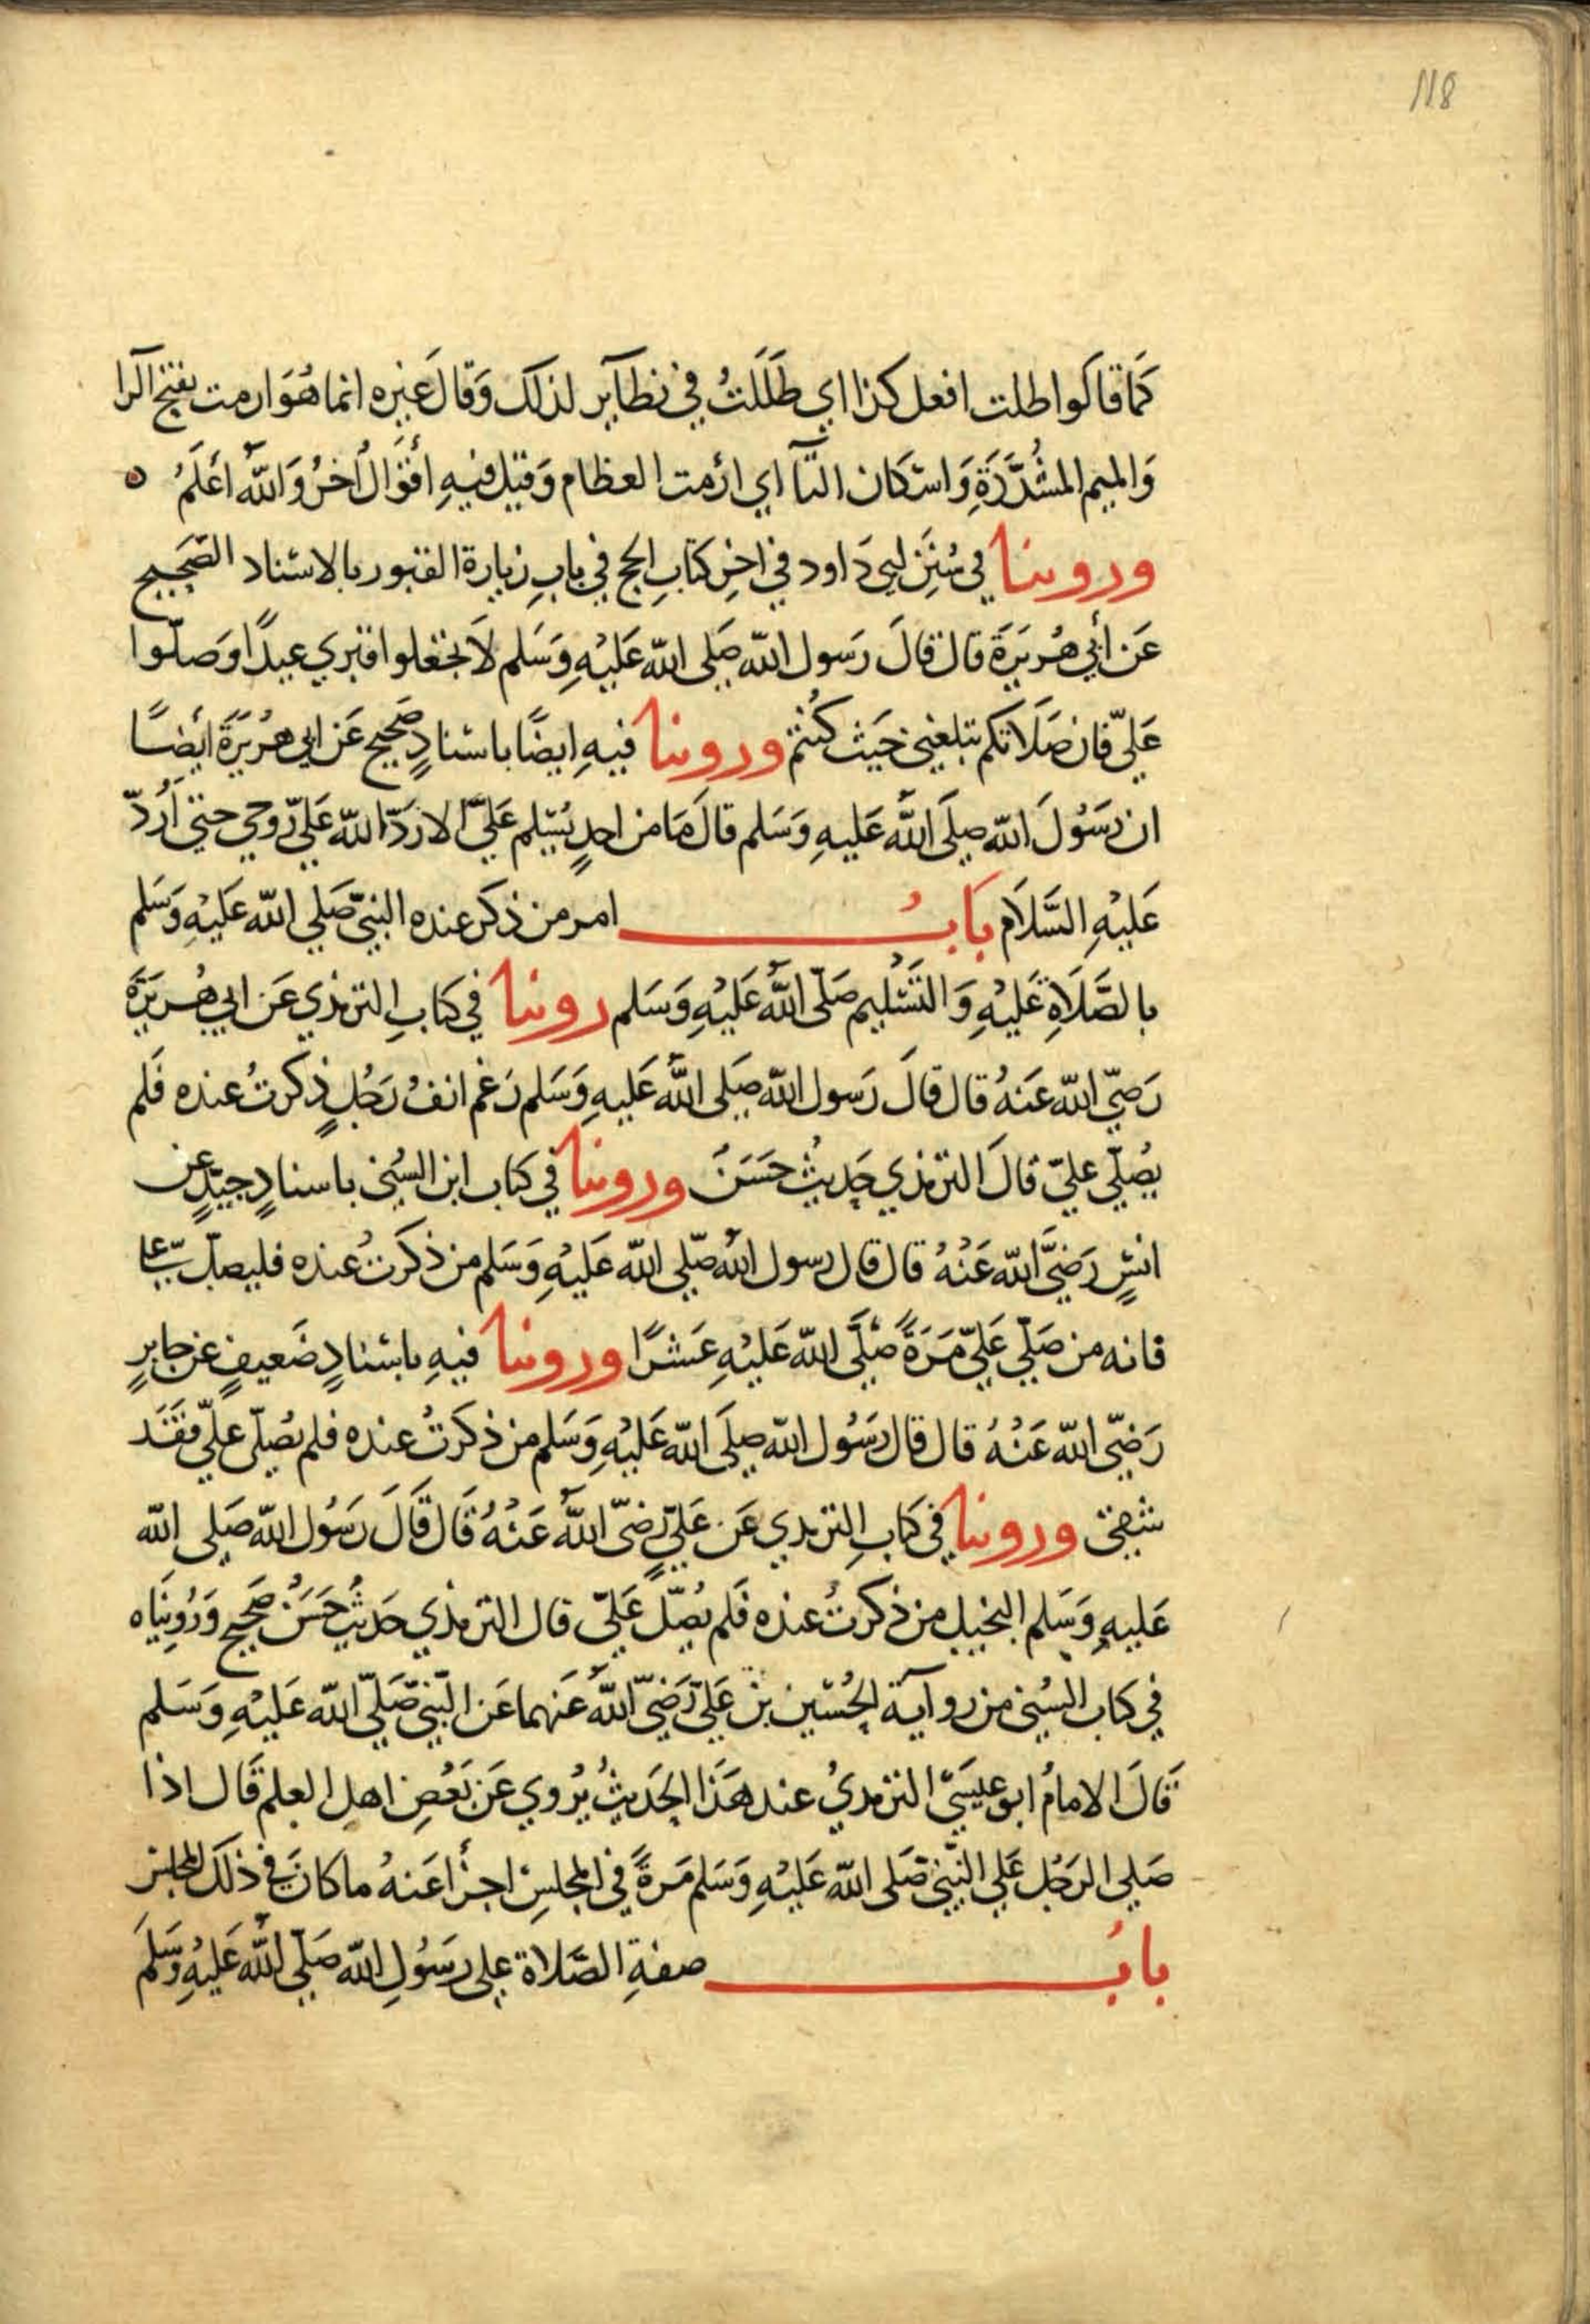 118
كَمَا قَالَوا ظلت افعل كذا اي ظَلَلتُ في نظآير لذلك وَقالَ غيره انما هُوَ ارمت بفتح الرا
وَالميم المشُدَّدَةِ وَاسْكان التآ اي ارُمت العظام وَقيل فيهِ اقوَالُ اُخرُ وَاللّه اعَلَمُ
وروينا في سُنَنِ ابي دَاود في اخِرِ كتابِ الحج في بابِ زيارة القبور بالاسناد الصَحيح
عَن أبي هُرَيرَة قال قالَ رَسول اللّه صَلى اللّه عَليْهِ وَسَلم لاَ تجعلوا قبري عيدًا وَصلّوا
عَليّ فان صَلاَتكم تبلغني حَيث كُنتم وروينا فيهِ ايضًا باسنادٍ صَحيح عَن ابي هرُيَرَة ايَضًا
ان رَسُولَ اللّه صلَى اللَّه عَليهِ وَسَلم قالَ مَا من احدٍ يُسَلم عَليَّ الا رَدّ اللّه عَليّ رُوحي حتي أردّ
عَليْهِ السَّلاَم بَابُ امر من ذكَر عنده النبيّ صَلي اللّه عَليْهِ وَسَلم
بالصَّلاَةِ عَليْهِ وَالتَسْليم صَلّى اللَّه عَليْهِ وَسَلم روينا في كتابِ الترمذي عَن ابي هُرَيرَة
رَضيّ اللّه عَنهُ قال قالَ رَسول اللّه صَلى اللَّه عَليهِ وَسَلم رَغم انفُ رَجُلٍ ذكرتُ عنده فَلم
يصُلّي عليّ قالَ الترمذي حَديثُ حسَنَ وروينا في كتاب ابن السُني باسنادٍ جيّدٍ عن
انسٍ رَضيَّ اللّه عَنْهُ قال قال رسول اللّه صَلّي اللّه عَليْهِ وَسَلم من ذكَرتُ عنده فليصلّ عليّ
فانه من صَلّي عَليّ مَرَةً صَلَّى اللّه عَليْهِ عَشرًا وروينا فيهِ باسنادٍ ضَعيفٍ عن جابرٍ
رَضيّ اللّه عَنْهُ قال قال رَسُول اللّه صلَى اللّه عَليْهِ وَسَلم من ذكَرتُ عنده فلم يصُلّي عليّ فقَدَ
شقيَ وروينا في كتابِ الترمدي عَن عَليٍّ رَضيّ اللَّه عَنْهُ قَال قَالَ رَسُول اللّه صَلى اللّه
عَليهِ وَسَلم البخيل من ذكرتُ عنده فَلم يصُلّ عَليّ قال الترمذي حَديثُ حسَنُ صَحيح وَرُوينَاه
في كتاب السُني من روآية الحُسَين بن عَليّ رَضيّ اللَّه عَنهما عَن النبيّ صَلّي اللّه عَليْهِ وَسَلم
قَالَ الامامُ ابو عيسَيّ الترمديُ عند هَذا الحَديثُ يُروي عَن بَعْضِ اهل العلم قَال اذا
صَلي الرَجُل عَلي النَّبيّ صَلى اللّه عَليْهِ وَسَلم مَرةً في المجلسِ اجزأ عَنهُ ما كانَ في ذلكَ المجلس
بابُ صفةِ الصَّلاة علي رَسُولِ اللّه صَلّي اللَّه عَليْهِ وَسَلَم